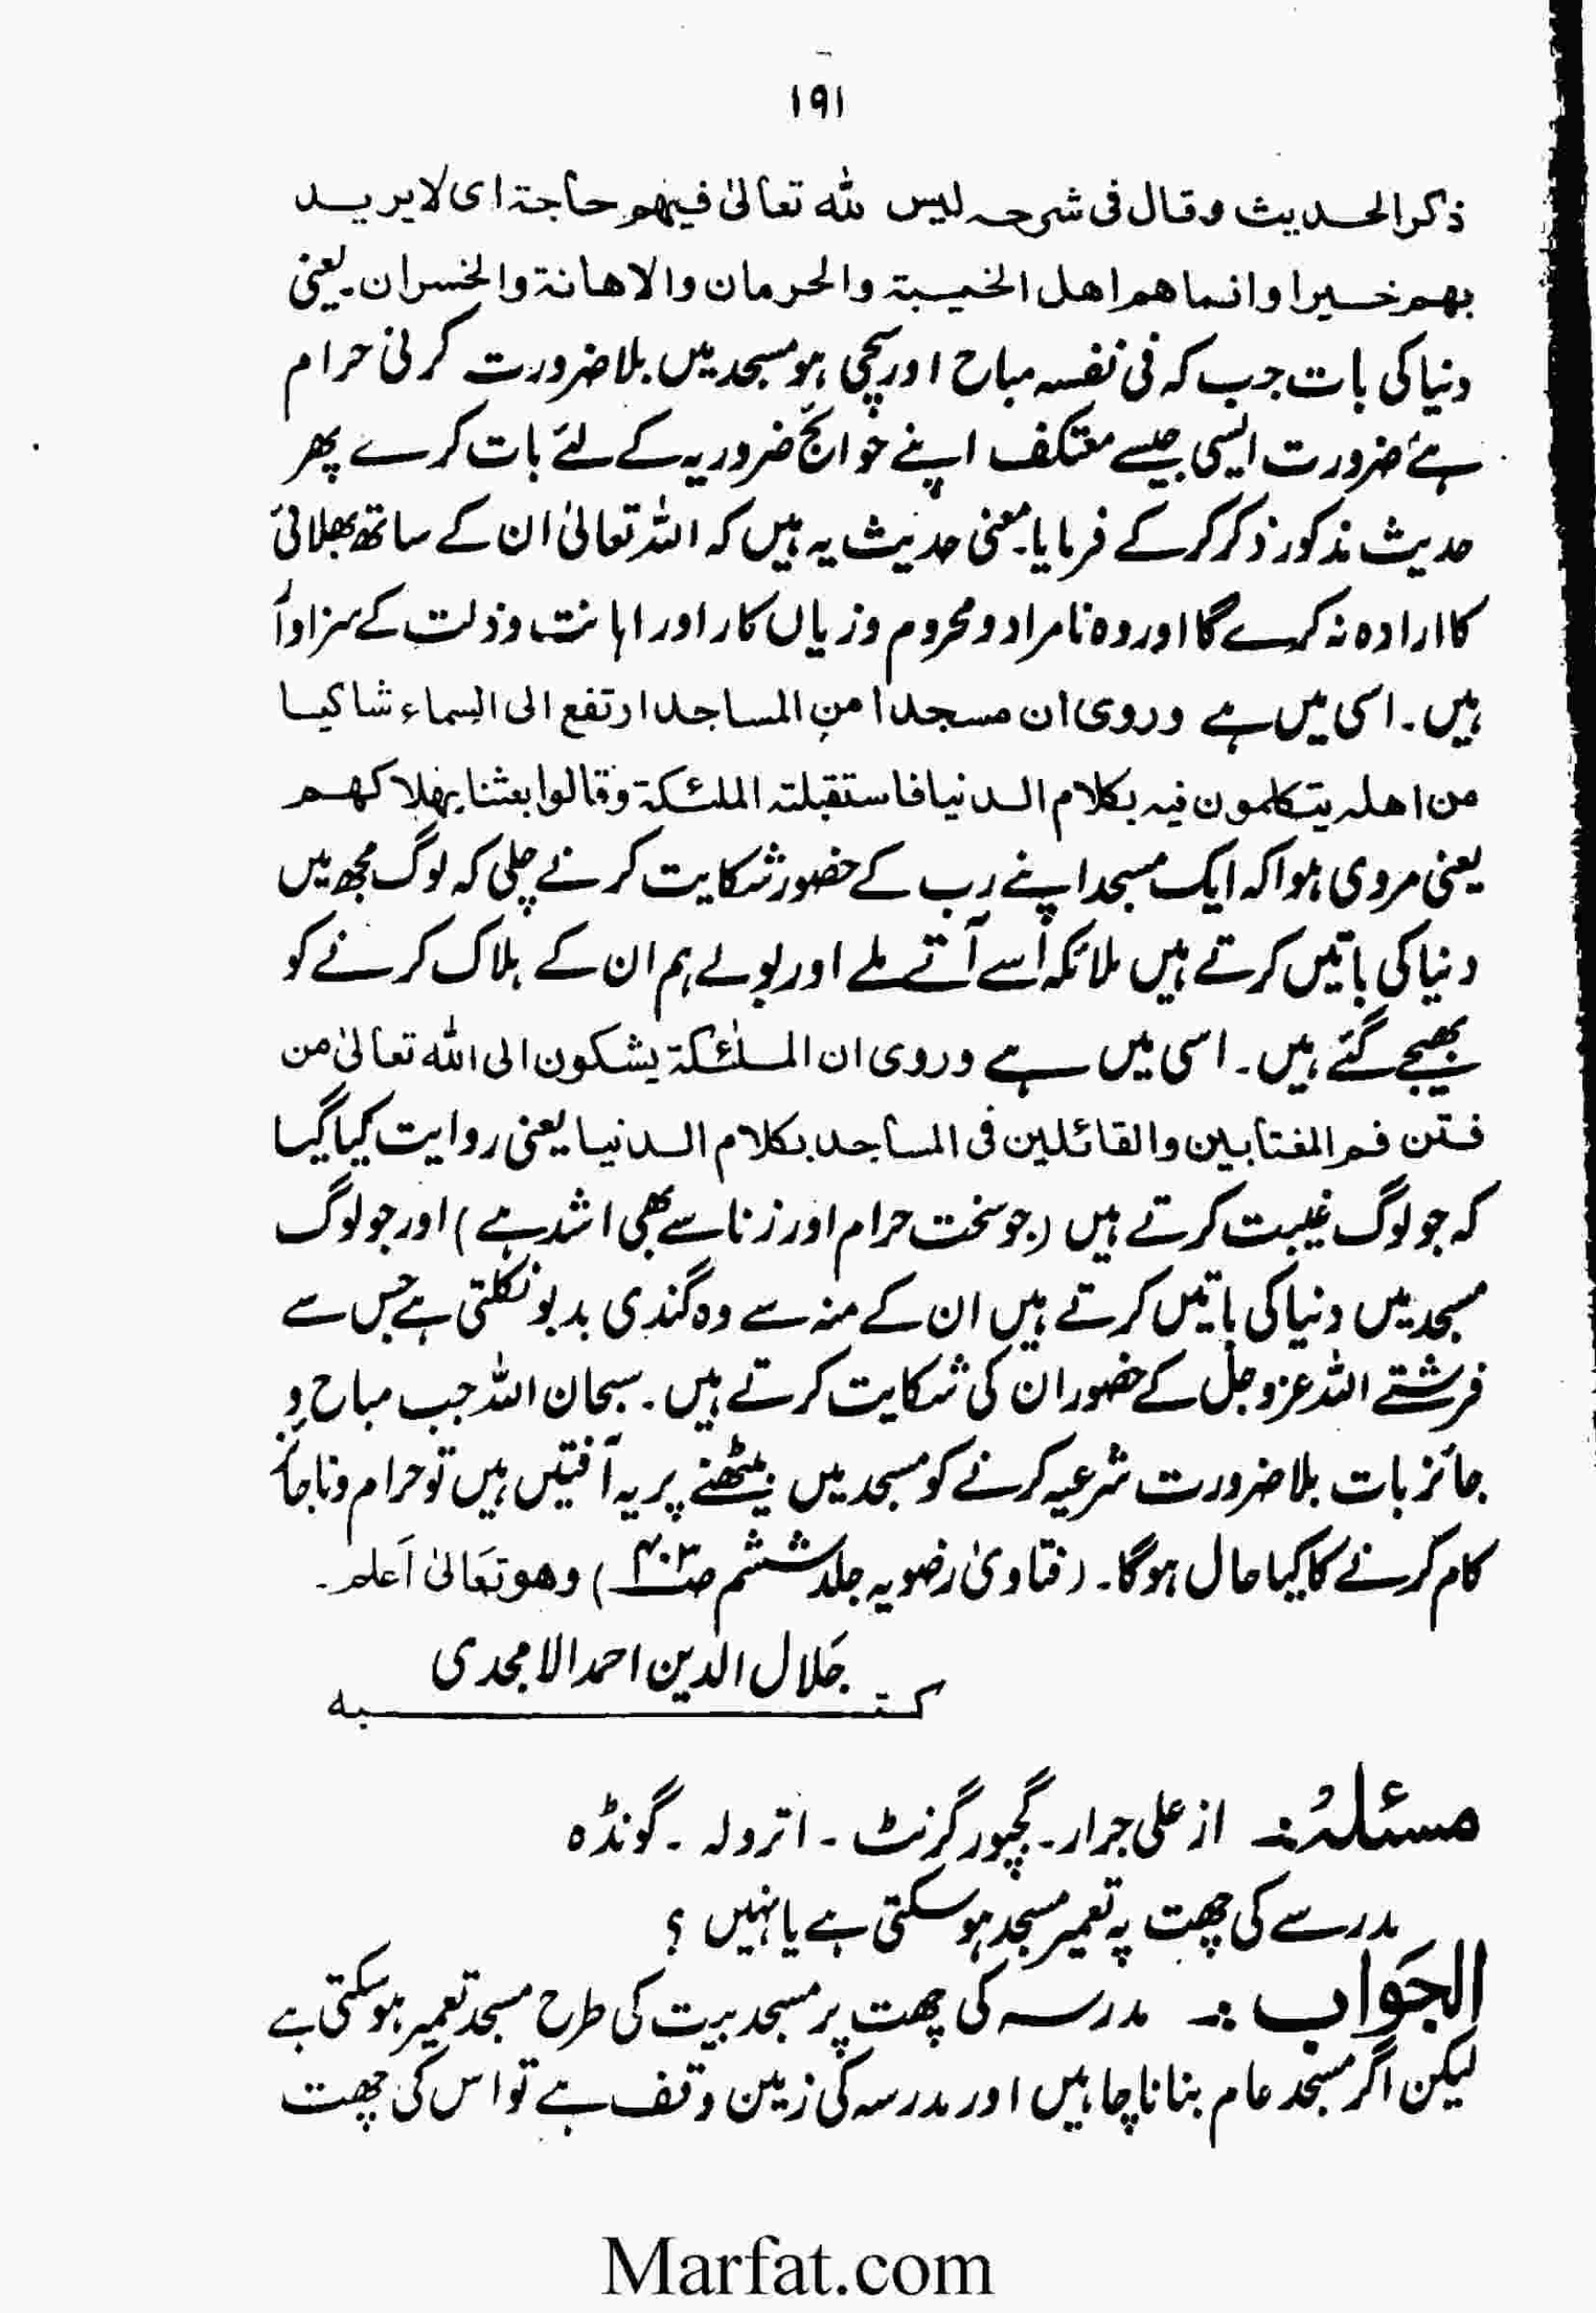 ۱۹۱
ذکر الحدیث وقال فی شرحہ لیس للہ تعالیٰ فیھم حاجۃ ای لا یرید
بھم خیرا وانما ھم اھل الخیبۃ والحرمان والاھانۃ والخسران۔ یعنی
دنیا کی بات جب کہ فی نفسہ مباح اور سچی ہو مسجد میں بلا ضرورت کرنی حرام
ہے ضرورت ایسی جیسے معتکف اپنے حوائج ضروریہ کے لئے بات کرے پھر
حدیث مذکور ذکر کر کے فرمایا۔ معنی حدیث یہ ہیں کہ اللہ تعالیٰ ان کے ساتھ بھلائی
کا ارادہ نہ کرے گا اور وہ نامراد و محروم و زیاں کار اور اہانت و ذلت کے سزاوار
ہیں۔ اسی میں ہے وروی ان مسجدا من المساجد ارتفع الی السماء شاکیا
من اھلہ یتکلمون فیہ بکلام الدنیا فاستقبلتہ الملئکۃ وقالوا بعثنا بھلاکھم
یعنی مروی ہوا کہ ایک مسجد اپنے رب کے حضور شکایت کرنے چلی کہ لوگ مجھ میں
دنیا کی باتیں کرتے ہیں ملائکہ اُسے آتے ملے اور بولے ہم ان کے ہلاک کرنے کو
بھیجے گئے ہیں۔ اسی میں ہے وروی ان الملٰئکۃ یشکون الی اللہ تعالیٰ من
فتن فم المغتابین والقائلین فی المساجد بکلام الدنیا یعنی روایت کیا گیا
کہ جو لوگ غیبت کرتے ہیں (جو سخت حرام اور زنا سے بھی اشد ہے) اور جو لوگ
مسجد میں دنیا کی باتیں کرتے ہیں ان کے منہ سے وہ گندی بدبو نکلتی ہے جس سے
فرشتے اللہ عزوجل کے حضور ان کی شکایت کرتے ہیں۔ سبحان اللہ جب مباح و
جائز بات بلا ضرورت شرعیہ کرنے کو مسجد میں بیٹھنے پر یہ آفتیں ہیں تو حرام و ناجائز
کام کرنے کا کیا حال ہوگا۔ (فتاویٰ رضویہ جلد ششم صـ۴۰۳) وھو تعالیٰ اَعلم۔
جلال الدین احمد الامجدی
کتـــــــبہ
مسئلہ:۔ از علی جرار۔ گجپور گرنٹ۔ اترولہ۔ گونڈہ
مدرسے کی چھت پہ تعمیر مسجد ہو سکتی ہے یا نہیں؟
الجَوَاب :۔ مدرسہ کی چھت پر مسجد بیت کی طرح مسجد تعمیر ہو سکتی ہے
لیکن اگر مسجد عام بنانا چاہیں اور مدرسہ کی زمین وقف ہے تو اس کی چھت
Marfat.com